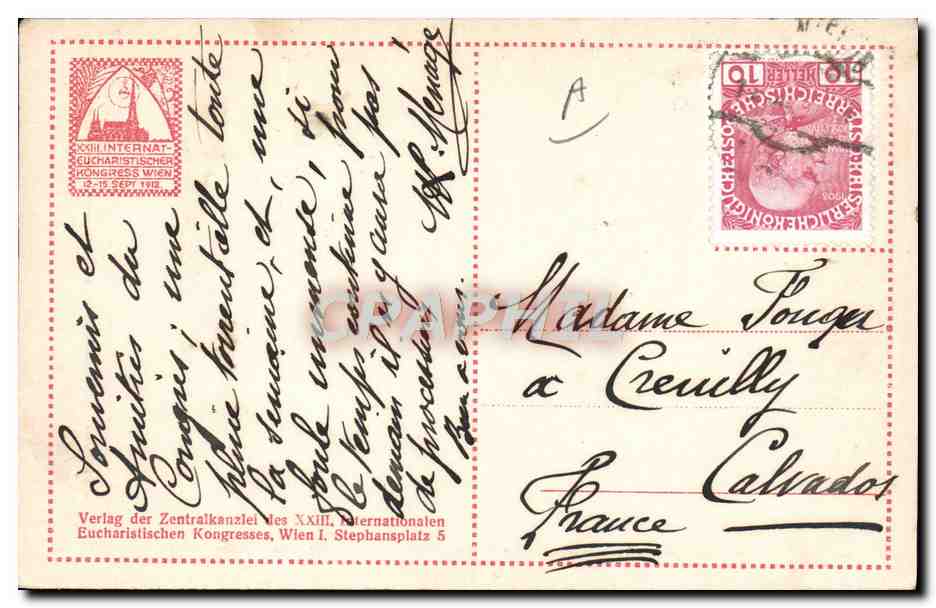 XXIII. INTERNAT-
EUCHARISTISCHER
KONGRESS WIEN
12-15. SEPT. 1912.
Souvenirs et
Amitiés du
Congrès, une
pluie torrentielle toute
la semaine, et, une
foule immense, si
le temps continue, pour
demain il n'y aura pas
de procession.
Bien à vous.
Menage
Verlag der Zentralkanzlei des XXIII. Internationalen
Eucharistischen Kongresses, Wien I. Stephansplatz 5
A
10 HELLER 10
KAISERLICHE KÖNIGLICHE ÖSTERREICHISCHE POST
1908
Madame Fouger
a Creuilly
Calvados
France
CRAPHIL